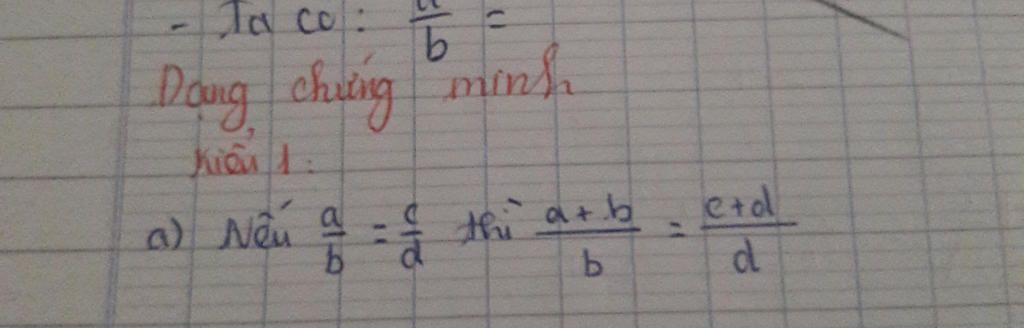 - Ta có: a/b =
Dạng chứng minh
Kiểu 1:
a) Nếu a/b = c/d thì a+b/b = c+d/d